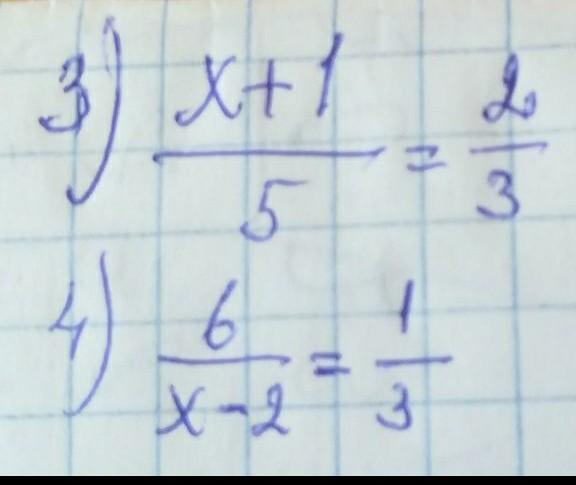 3) x+1/5 = 2/3
4) 6/x-2 = 1/3